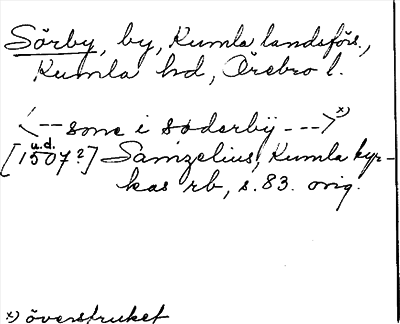 Sörby, by, Kumla landsförs.,
Kumla hd, Örebro l.
<-- some i søderbÿ --->x)
u.d.
[1507?] Samzelius, Kumla kyr-
kas rb, s. 83. orig.
x) överstruket